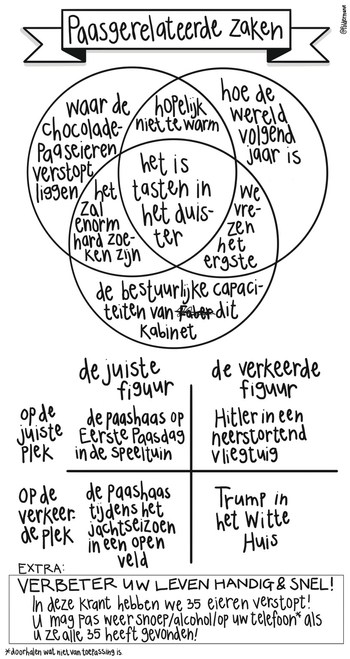 Paasgerelateerde zaken
waar de
chocolade-
paaseieren
verstopt
liggen
hopelijk
niet te warm
hoe de
wereld
volgend
jaar is
het is
tasten in
het duis-
ter
het
zal
enorm
hard zoe-
ken zijn
we
vre-
zen
het
ergste
de bestuurlijke capaci-
teiten van Faber dit
kabinet
de juiste
figuur
de verkeerde
figuur
op de
juiste
plek
de paashaas op
Eerste Paasdag
in de speeltuin
Hitler in een
neerstortend
vliegtuig
op de
verkeer-
de plek
de paashaas
tijdens het
jachtseizoen
in een open
veld
Trump in
het Witte
Huis
EXTRA:
VERBETER UW LEVEN HANDIG & SNEL!
In deze krant hebben we 35 eieren verstopt!
U mag pas weer snoep/alcohol/op uw telefoon* als
u ze alle 35 heeft gevonden!
*doorhalen wat niet van toepassing is